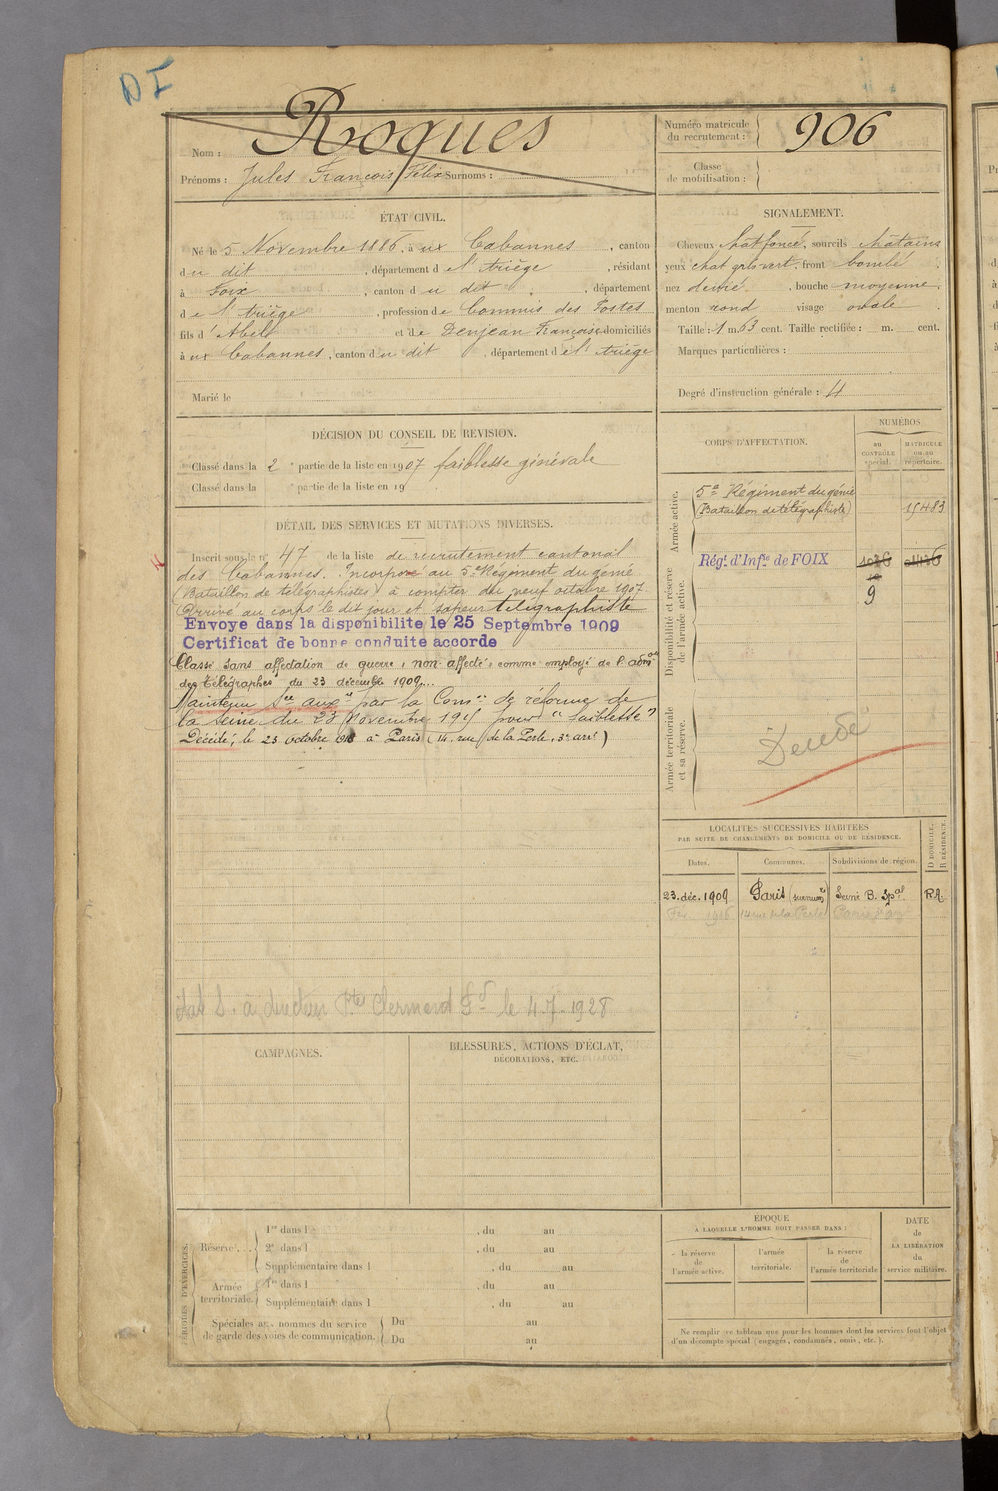 DI
Nom : Roques
Prénoms : Jules François Félix Surnoms :
Numéro matricule du recrutement : 906
Classe de mobilisation :
ÉTAT CIVIL.
Né le 5 Novembre 1886, à ux Cabannes, canton
du dit, département de l'Ariège, résidant
à Foix, canton du dit, département
de l'Ariège, profession de Commis des Postes
fils d'Abel et de Denjean Françoise domiciliés
à ux Cabannes, canton du dit, département de l'Ariège
Marié le
SIGNALEMENT.
Cheveux chat foncé, sourcils châtains
yeux chat gris vert, front bombé
nez , bouche moyenne,
menton rond visage ovale
Taille : 1 m. 63 cent. Taille rectifiée : m. cent.
Marques particulières :
Degré d'instruction générale : 4
DÉCISION DU CONSEIL DE REVISION.
Classé dans la 2e partie de la liste en 1907 faiblesse générale
Classé dans la e partie de la liste en 19
DÉTAIL DES SERVICES ET MUTATIONS DIVERSES.
Inscrit sous le n° 47 de la liste de recrutement cantonal
des Cabannes. Incorporé au 5e Régiment du génie
(Bataillon de télégraphistes) à compter du neuf octobre 1907.
Arrivé au corps le dit jour et sapeur télégraphiste
Envoye dans la disponibilite le 25 Septembre 1909
Certificat de bonne conduite accorde
Classé sans affectation de guerre "non affecté" comme employé de l'admon
des Télégraphes du 23 décembre 1909...
Maintenu Sce auxre par la Comon de réforme de
la Seine du 23 Novembre 191 pour "faiblesse"
Décédé, le 23 octobre 1918 à Paris (14, rue de la Perle, 3e arrt)
à directeur Ptes Clermont Fd le 4.7.1928
CORPS D'AFFECTATION.
NUMÉROS
au CONTRÔLE spécial.
MATRICULE ou au répertoire.
Armée active.
5e Régiment du génie
(Bataillon de télégraphiste) 15483
Disponibilité et réserve de l'armée active.
Régt d'Infie de FOIX
9
Armée territoriale et sa réserve.
Décédé
LOCALITÉS SUCCESSIVES HABITÉES
PAR SUITE DE CHANGEMENTS DE DOMICILE OU DE RÉSIDENCE.
Dates. Communes. Subdivisions de région. D DOMICILE. R RÉSIDENCE.
23. déc. 1909 Paris (surnumre) Seine B. Spal. RA
1916 14 rue de la Perle Paris 3e arr
CAMPAGNES.
BLESSURES, ACTIONS D'ÉCLAT,
DÉCORATIONS, ETC.
PÉRIODES D'EXERCICES.
Réserve.... 1re dans l , du au
2e dans l , du au
Supplémentaire dans l , du au
Armée territoriale. 1re dans l , du au
Supplémentaire dans l , du au
Spéciales aux hommes du service
de garde des voies de communication. Du au
Du au
ÉPOQUE
À LAQUELLE L'HOMME DOIT PASSER DANS :
la réserve de l'armée active.
l'armée territoriale.
la réserve de l'armée territoriale
DATE
de
LA LIBÉRATION
du
service militaire.
Ne remplir ce tableau que pour les hommes dont les services font l'objet
d'un décompte spécial (engagés, condamnés, omis, etc.).